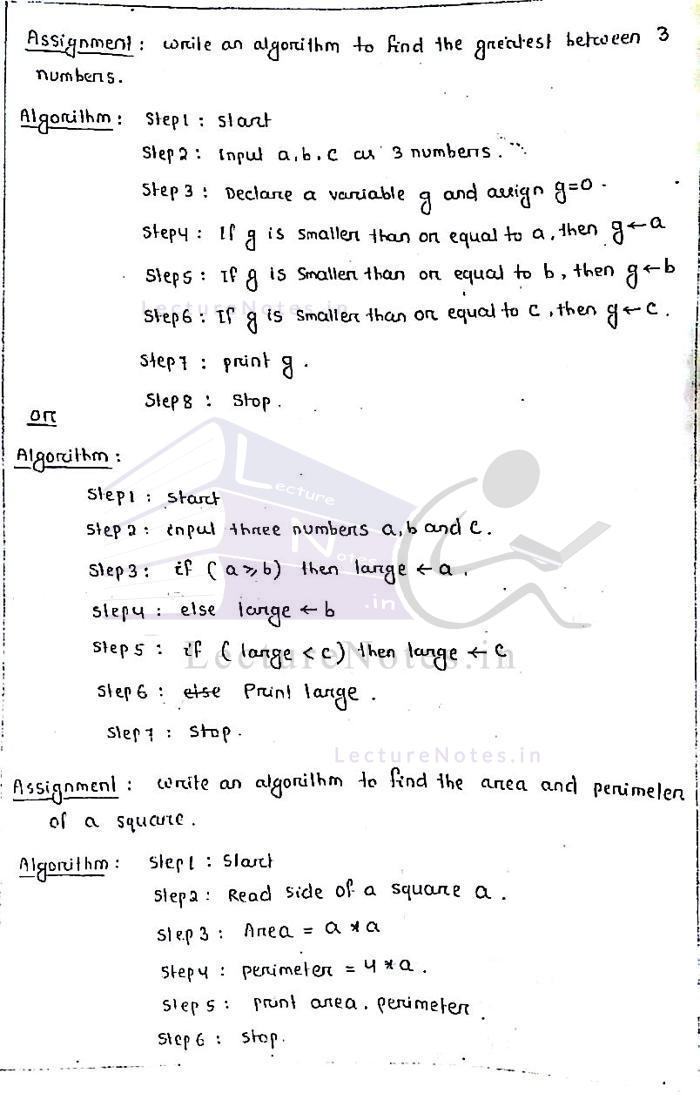 Assignment : write an algorithm to find the greatest between 3
numbers.
Algorithm : Step1 : start
Step 2 : Input a, b, c as 3 numbers.
Step 3 : Declare a variable g and assign g=0.
Step4 : If g is smaller than or equal to a, then g←a
Step5 : If g is smaller than or equal to b, then g←b
LectureNotes.in
Step6 : If g is smaller than or equal to c, then g←c.
Step7 : print g.
Step8 : Stop.
or
Algorithm :
Step1 : start
Lecture
Step 2 : input three numbers a, b and c.
Notes
Step3 : if (a>,b) then large ← a.
.in
step4 : else large ← b
Step5 : if (large < c) then large ← c
LectureNotes.in
Step6 : else Print large.
Step7 : Stop.
LectureNotes.in
Assignment : write an algorithm to find the area and perimeter
of a square.
Algorithm : Step1 : Start
Step2 : Read side of a square a.
Step3 : Area = a * a
Step4 : perimeter = 4*a.
Step5 : print area, perimeter.
Step6 : stop.